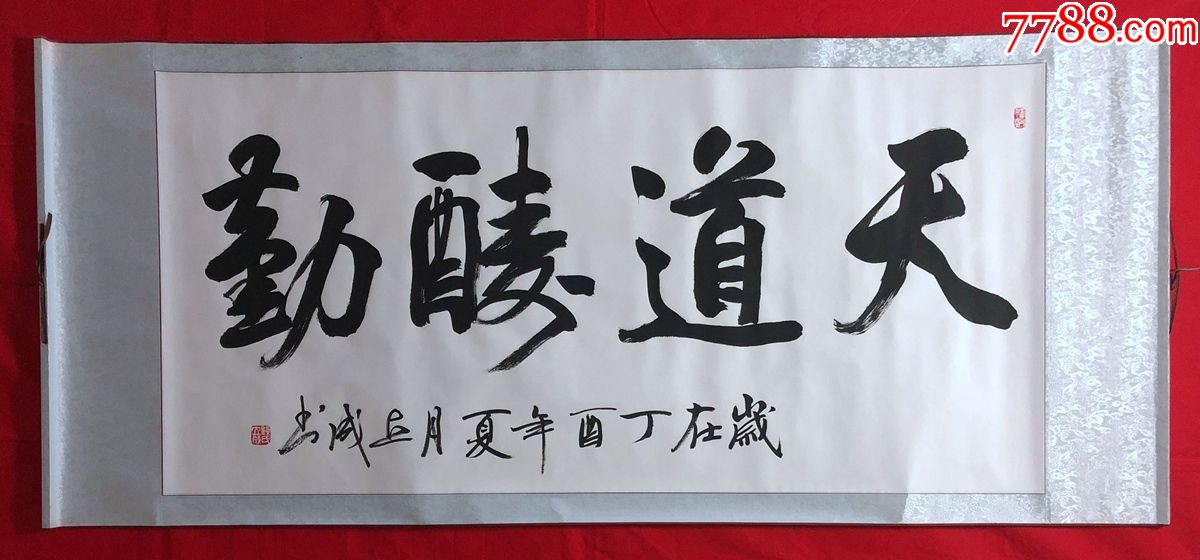 7788.com
天道酬勤
歲在丁酉年夏月成书